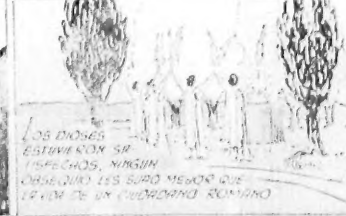 LOS DIOSES
ESTUVIERON SA
TISFECHOS, NINGUN
OBSEQUIO LES SUPO MEJOR QUE
LA VIDA DE UN CIUDADANO ROMANO